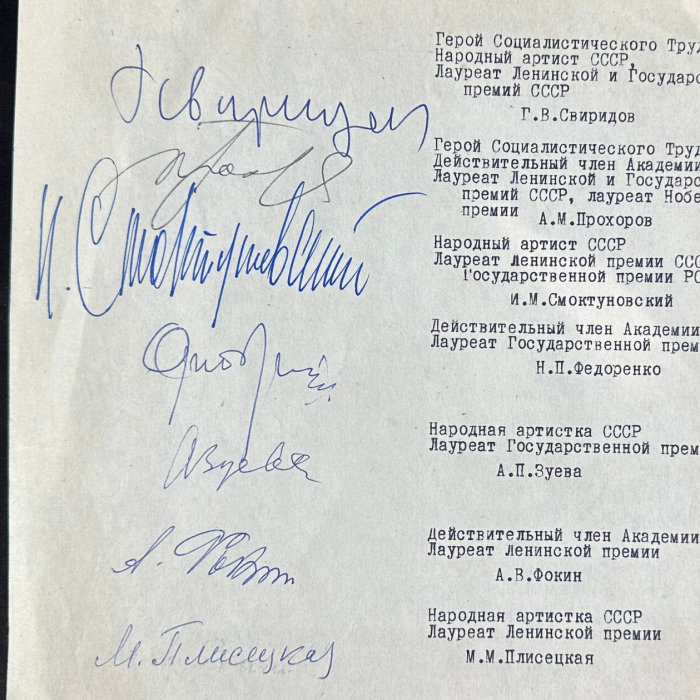 Герой Социалистического Труд
Народный артист СССР,
Лауреат Ленинской и Государс
премий СССР
Г.В.Свиридов
Герой Социалистического Труд
Действительный член Академии
Лауреат Ленинской и Государс
премий СССР, лауреат Нобе
премии
А.М.Прохоров
И. Смоктуновский
Народный артист СССР
Лауреат Ленинской премии ССС
Государственной премии РС
И.М.Смоктуновский
Действительный член Академии
Лауреат Государственной прем
Н.П.Федоренко
Народная артистка СССР
Лауреат Государственной прем
А.П.Зуева
АЗуева
Действительный член Академии
Лауреат Ленинской премии
А.В.Фокин
Народная артистка СССР
Лауреат Ленинской премии
М.М.Плисецкая
М.Плисецкая